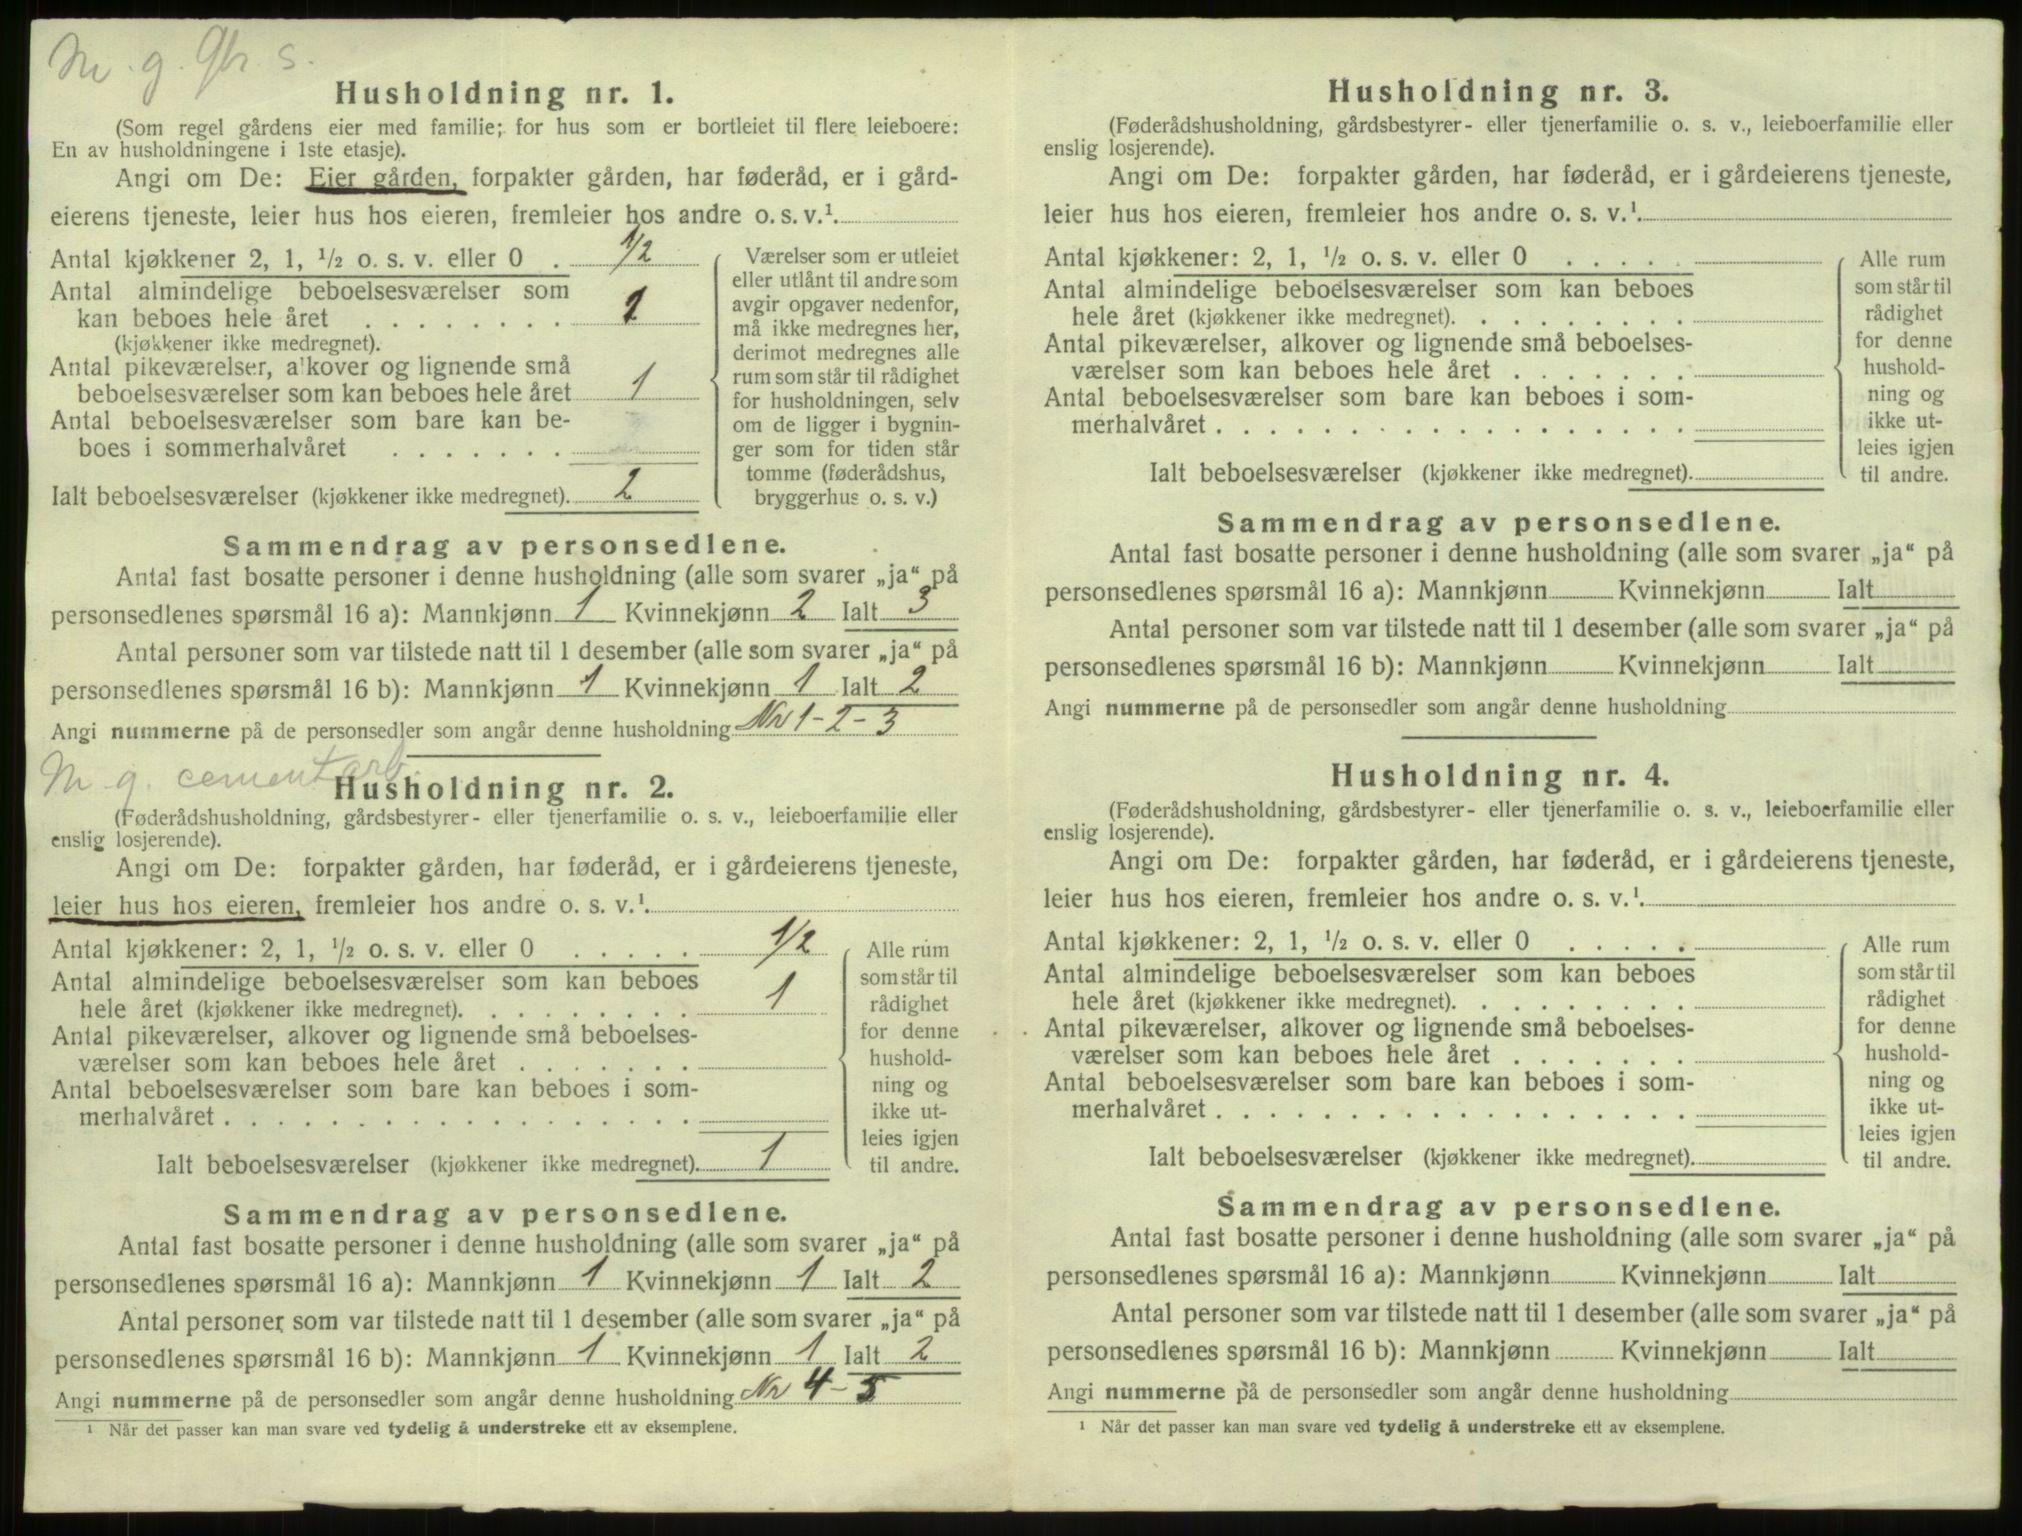 M. g. Gbr. s.
Husholdning nr. 1.
(Som regel gårdens eier med familie; for hus som er bortleiet til flere leieboere:
En av husholdningene i 1ste etasje).
Angi om De: Eier gården, forpakter gården, har føderåd, er i gård-
eierens tjeneste, leier hus hos eieren, fremleier hos andre o. s. v.¹.
Antal kjøkkener 2, 1, ¹/₂ o. s. v. eller 0 . 1/2
Antal almindelige beboelsesværelser som
kan beboes hele året . . . . . . . . 1
(kjøkkener ikke medregnet).
Antal pikeværelser, alkover og lignende små
beboelsesværelser som kan beboes hele året 1
Antal beboelsesværelser som bare kan be-
boes i sommerhalvåret . . . . . . .
Ialt beboelsesværelser (kjøkkener ikke medregnet). 2
Værelser som er utleiet
eller utlånt til andre som
avgir opgaver nedenfor,
må ikke medregnes her,
derimot medregnes alle
rum som står til rådighet
for husholdningen, selv
om de ligger i bygnin-
ger som for tiden står
tomme (føderådshus,
bryggerhus o. s. v.)
Sammendrag av personsedlene.
Antal fast bosatte personer i denne husholdning (alle som svarer „ja“ på
personsedlenes spørsmål 16 a): Mannkjønn 1 Kvinnekjønn 2 Ialt 3
Antal personer som var tilstede natt til 1 desember (alle som svarer „ja“ på
personsedlenes spørsmål 16 b): Mannkjønn 1 Kvinnekjønn 1 Ialt 2
Angi nummerne på de personsedler som angår denne husholdning Nr 1-2-3
M. g. cementarb.
Husholdning nr. 2.
(Føderådshusholdning, gårdsbestyrer- eller tjenerfamilie o. s. v., leieboerfamilie eller
enslig losjerende).
Angi om De: forpakter gården, har føderåd, er i gårdeierens tjeneste,
leier hus hos eieren, fremleier hos andre o. s. v.¹.
Antal kjøkkener: 2, 1, ¹/₂ o. s. v. eller 0 . . . . . 1/2
Antal almindelige beboelsesværelser som kan beboes
hele året (kjøkkener ikke medregnet). . . . . . . . . 1
Antal pikeværelser, alkover og lignende små beboelses-
værelser som kan beboes hele året . . . . . . .
Antal beboelsesværelser som bare kan beboes i som-
merhalvåret . . . . . . . . . . . . . . . . . .
Ialt beboelsesværelser (kjøkkener ikke medregnet). 1
Alle rum
som står til
rådighet
for denne
hushold-
ning og
ikke ut-
leies igjen
til andre.
Sammendrag av personsedlene.
Antal fast bosatte personer i denne husholdning (alle som svarer „ja“ på
personsedlenes spørsmål 16 a): Mannkjønn 1 Kvinnekjønn 1 Ialt 2
Antal personer som var tilstede natt til 1 desember (alle som svarer „ja“ på
personsedlenes spørsmål 16 b): Mannkjønn 1 Kvinnekjønn 1 Ialt 2
Angi nummerne på de personsedler som angår denne husholdning Nr 4-5
¹ Når det passer kan man svare ved tydelig å understreke ett av eksemplene.
Husholdning nr. 3.
(Føderådshusholdning, gårdsbestyrer- eller tjenerfamilie o. s. v., leieboerfamilie eller
enslig losjerende).
Angi om De: forpakter gården, har føderåd, er i gårdeierens tjeneste,
leier hus hos eieren, fremleier hos andre o. s. v.¹.
Antal kjøkkener: 2, 1, ¹/₂ o. s. v. eller 0 . . . . .
Antal almindelige beboelsesværelser som kan beboes
hele året (kjøkkener ikke medregnet). . . . . . . . .
Antal pikeværelser, alkover og lignende små beboelses-
værelser som kan beboes hele året . . . . . . .
Antal beboelsesværelser som bare kan beboes i som-
merhalvåret . . . . . . . . . . . . . . . . . .
Ialt beboelsesværelser (kjøkkener ikke medregnet).
Alle rum
som står til
rådighet
for denne
hushold-
ning og
ikke ut-
leies igjen
til andre.
Sammendrag av personsedlene.
Antal fast bosatte personer i denne husholdning (alle som svarer „ja“ på
personsedlenes spørsmål 16 a): Mannkjønn Kvinnekjønn Ialt
Antal personer som var tilstede natt til 1 desember (alle som svarer „ja“ på
personsedlenes spørsmål 16 b): Mannkjønn Kvinnekjønn Ialt
Angi nummerne på de personsedler som angår denne husholdning
Husholdning nr. 4.
(Føderådshusholdning, gårdsbestyrer- eller tjenerfamilie o. s. v., leieboerfamilie eller
enslig losjerende).
Angi om De: forpakter gården, har føderåd, er i gårdeierens tjeneste,
leier hus hos eieren, fremleier hos andre o. s. v.¹.
Antal kjøkkener: 2, 1, ¹/₂ o. s. v. eller 0 . . . . .
Antal almindelige beboelsesværelser som kan beboes
hele året (kjøkkener ikke medregnet). . . . . . . . .
Antal pikeværelser, alkover og lignende små beboelses-
værelser som kan beboes hele året . . . . . . .
Antal beboelsesværelser som bare kan beboes i som-
merhalvåret . . . . . . . . . . . . . . . . . .
Ialt beboelsesværelser (kjøkkener ikke medregnet).
Alle rum
som står til
rådighet
for denne
hushold-
ning og
ikke ut-
leies igjen
til andre.
Sammendrag av personsedlene.
Antal fast bosatte personer i denne husholdning (alle som svarer „ja“ på
personsedlenes spørsmål 16 a): Mannkjønn Kvinnekjønn Ialt
Antal personer som var tilstede natt til 1 desember (alle som svarer „ja“ på
personsedlenes spørsmål 16 b): Mannkjønn Kvinnekjønn Ialt
Angi nummerne på de personsedler som angår denne husholdning
¹ Når det passer kan man svare ved tydelig å understreke ett av eksemplene.